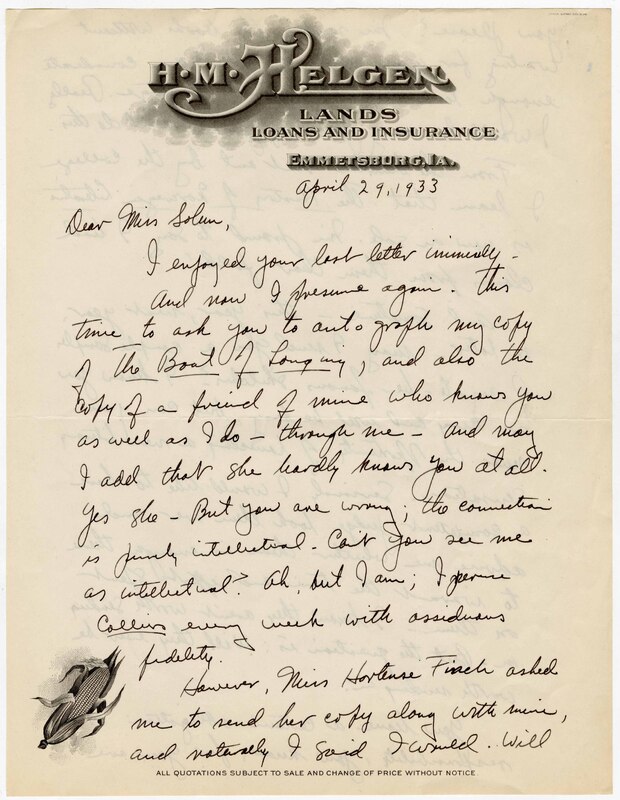 H·M·HELGEN
LANDS
LOANS AND INSURANCE
EMMETSBURG, IA.
April 29, 1933
Dear Miss Solum,
I enjoyed your last letter immensely.
And now I presume again. This
time to ask you to autograph my copy
of The Boat of Longing, and also the
copy of a friend of mine who knows you
as well as I do – through me – And may
I add that she hardly knows you at all.
Yes she – But you are wrong; the connection
is purely intellectual. Can't you see me
as intellectual? Ah, but I am; I peruse
Colliers every week with assiduous
fidelity.
However, Miss Hortense Finch asked
me to send her copy along with mine,
and naturally I said I would. Will
ALL QUOTATIONS SUBJECT TO SALE AND CHANGE OF PRICE WITHOUT NOTICE